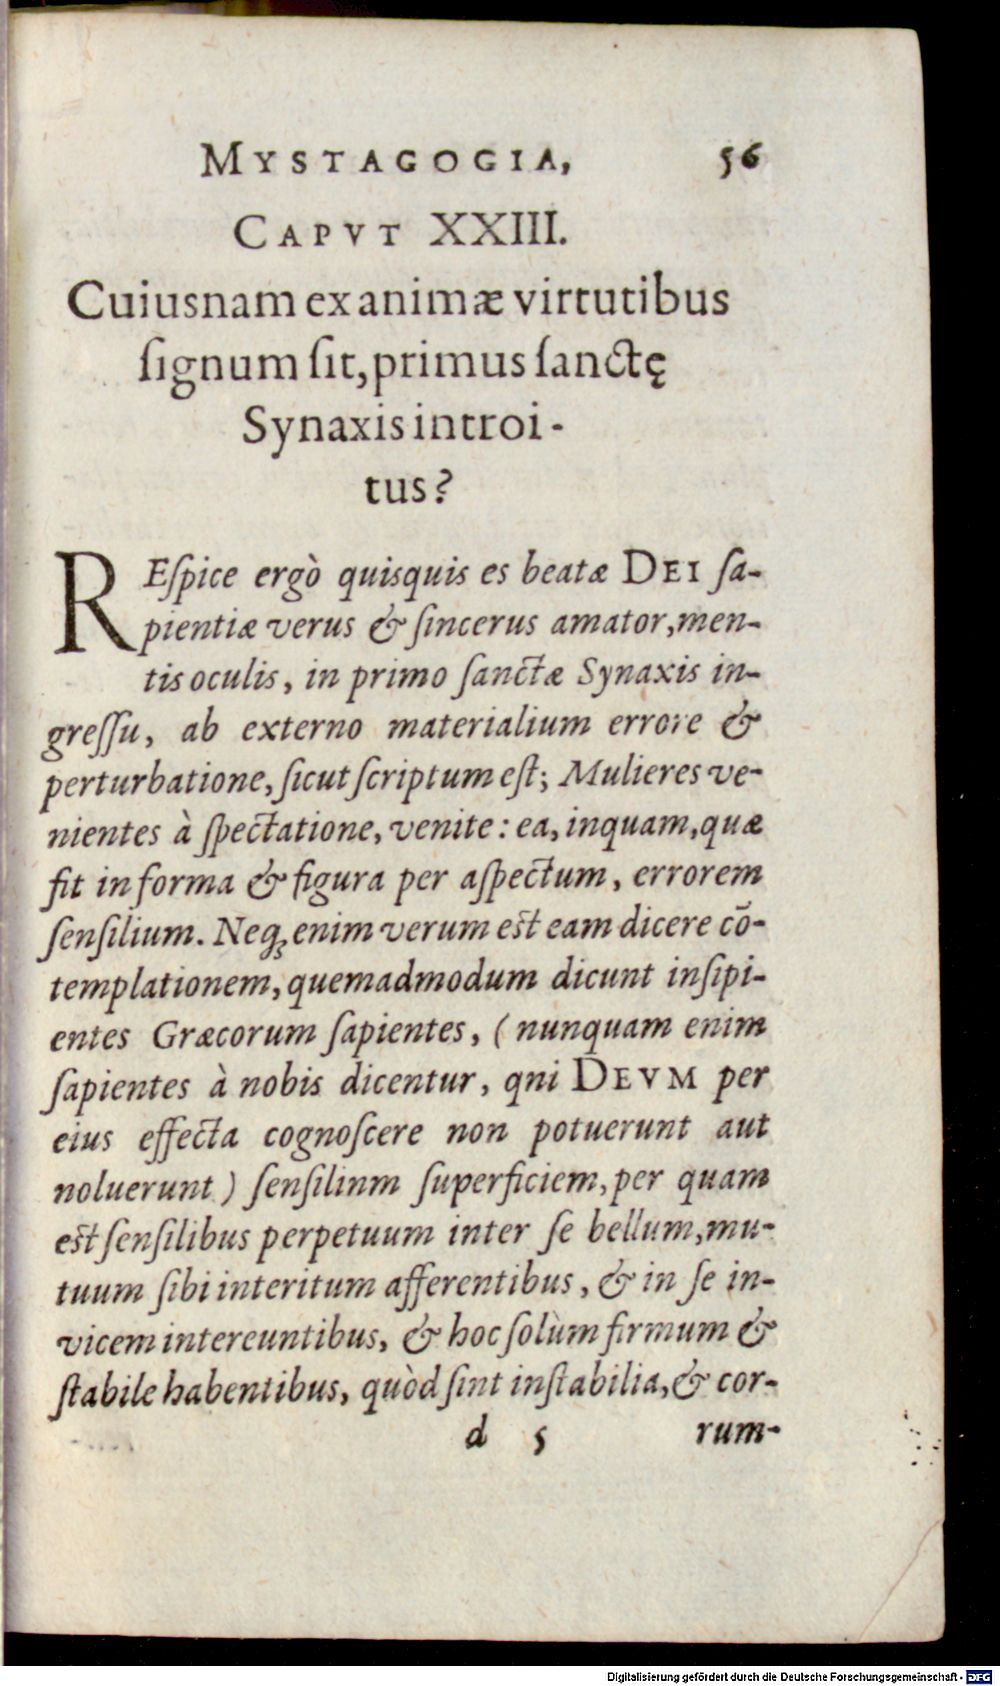 MYSTAGOGIA, 56
CAPVT XXIII.
Cuiusnam ex animæ virtutibus
ſignum ſit, primus ſanctę
Synaxis introi-
tus?
REſpice ergò quisquis es beatæ DEI ſa-
pientiæ verus & ſincerus amator, men-
tis oculis, in primo ſanctæ Synaxis in-
greſſu, ab externo materialium errore &
perturbatione, ſicut ſcriptum eſt; Mulieres ve-
nientes à ſpectatione, venite: ea, inquam, quæ
fit in forma & figura per aſpectum, errorem
ſenſilium. Neqꝫ enim verum eſt eam dicere cō-
templationem, quemadmodum dicunt inſipi-
entes Græcorum ſapientes, (nunquam enim
ſapientes à nobis dicentur, qni DEVM per
eius effecta cognoſcere non potuerunt aut
noluerunt) ſenſilinm ſuperficiem, per quam
eſt ſenſilibus perpetuum inter ſe bellum, mu-
tuum ſibi interitum afferentibus, & in ſe in-
vicem intereuntibus, & hoc ſolùm firmum &
ſtabile habentibus, quòd ſint inſtabilia, & cor-
d 5 rum-
Digitalisierung gefördert durch die Deutsche Forschungsgemeinschaft - DFG